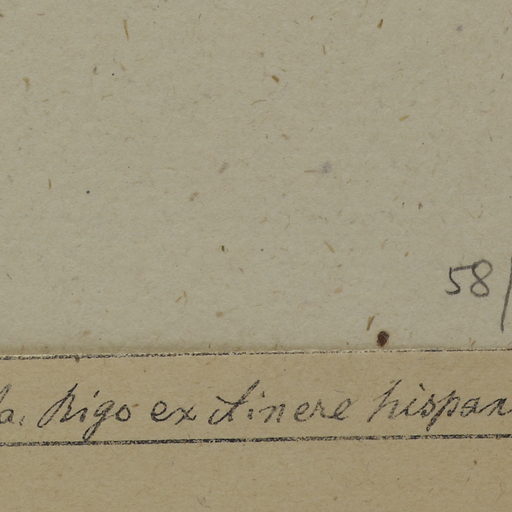 58/
a. Rigo ex itinere hispan